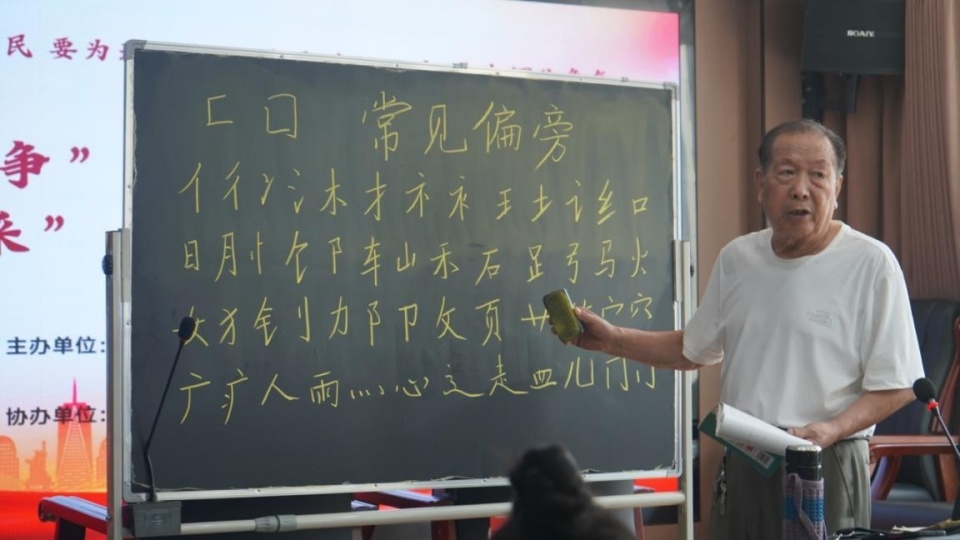 民 要 为
争”
采”
主办单位:
协办单位:
匚 口 常见偏旁
亻 彳 冫 氵 木 扌 礻 衤 王 土 讠 纟 口
日 月 忄 饣 阝 车 山 禾 石 足 弓 马 火
女 犭 钅 刂 力 阝 卩 攵 页 艹 宀 穴
广 疒 人 雨 灬 心 辶 走 皿 儿 门